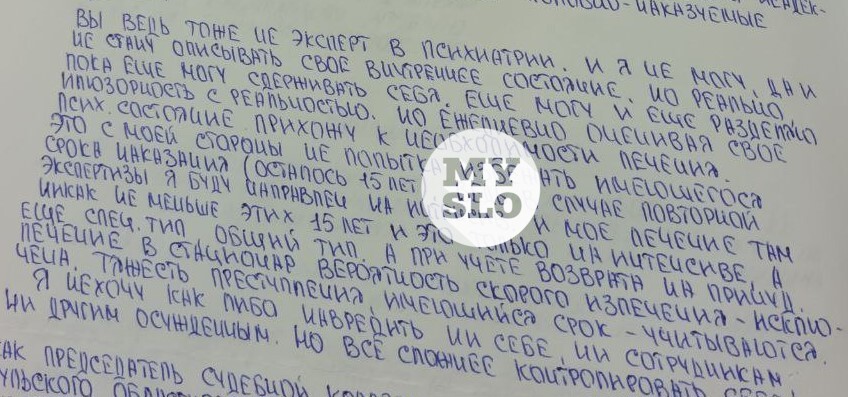 НАКАЗУЕМЫЕ
ВЫ ВЕДЬ ТОЖЕ НЕ ЭКСПЕРТ В ПСИХИАТРИИ. И Я НЕ МОГУ, ДА И
НЕ СТАНУ ОПИСЫВАТЬ СВОЕ ВНУТРЕННЕЕ СОСТОЯНИЕ. НО РЕАЛЬНО
ПОКА ЕЩЕ МОГУ СДЕРЖИВАТЬ СЕБЯ. ЕЩЕ МОГУ И ЕЩЕ РАЗДЕЛЯЮ
ИЛЮЗОРНОСТЬ С РЕАЛЬНОСТЬЮ. НО ЕЖЕДНЕВНО ОЦЕНИВАЯ СВОЕ
ПСИХ. СОСТОЯНИЕ ПРИХОЖУ К НЕОБХОДИМОСТИ ЛЕЧЕНИЯ.
ЭТО С МОЕЙ СТОРОНЫ НЕ ПОПЫТКА ИМЕЮЩЕГОСЯ
СРОКА НАКАЗАНИЯ (ОСТАЛОСЬ 15 ЛЕТ) СЛУЧАЕ ПОВТОРНОЙ
ЭКСПЕРТИЗЫ Я БУДУ НАПРАВЛЕН НА И МОЕ ЛЕЧЕНИЕ ТАМ
НИКАК НЕ МЕНЬШЕ ЭТИХ 15 ЛЕТ И ЭТО ТОЛЬКО НА ИНТЕНСИВЕ, А
ЕЩЕ СПЕЦ. ТИП ОБЩИЙ ТИП. А ПРИ УЧЕТЕ ВОЗВРАТА НА ПРИНУД.
ЛЕЧЕНИЕ В СТАЦИОНАР ВЕРОЯТНОСТЬ СКОРОГО ИЗЛЕЧЕНИЯ - ИСКЛЮ-
ЧЕНА. ТЯЖЕСТЬ ПРЕСТУПЛЕНИЯ, ИМЕЮЩИЙСЯ СРОК - УЧИТЫВАЮТСЯ.
Я НЕХОЧУ КАК ЛИБО НАВРЕДИТЬ НИ СЕБЕ, НИ СОТРУДНИКАМ
НИ ДРУГИМ ОСУЖДЕННЫМ. НО ВСЕ СЛОЖНЕЕ КОНТРОЛИРОВАТЬ СЕБЯ
КАК ПРЕДСЕДАТЕЛЬ СУДЕБНОЙ
MY
SLO